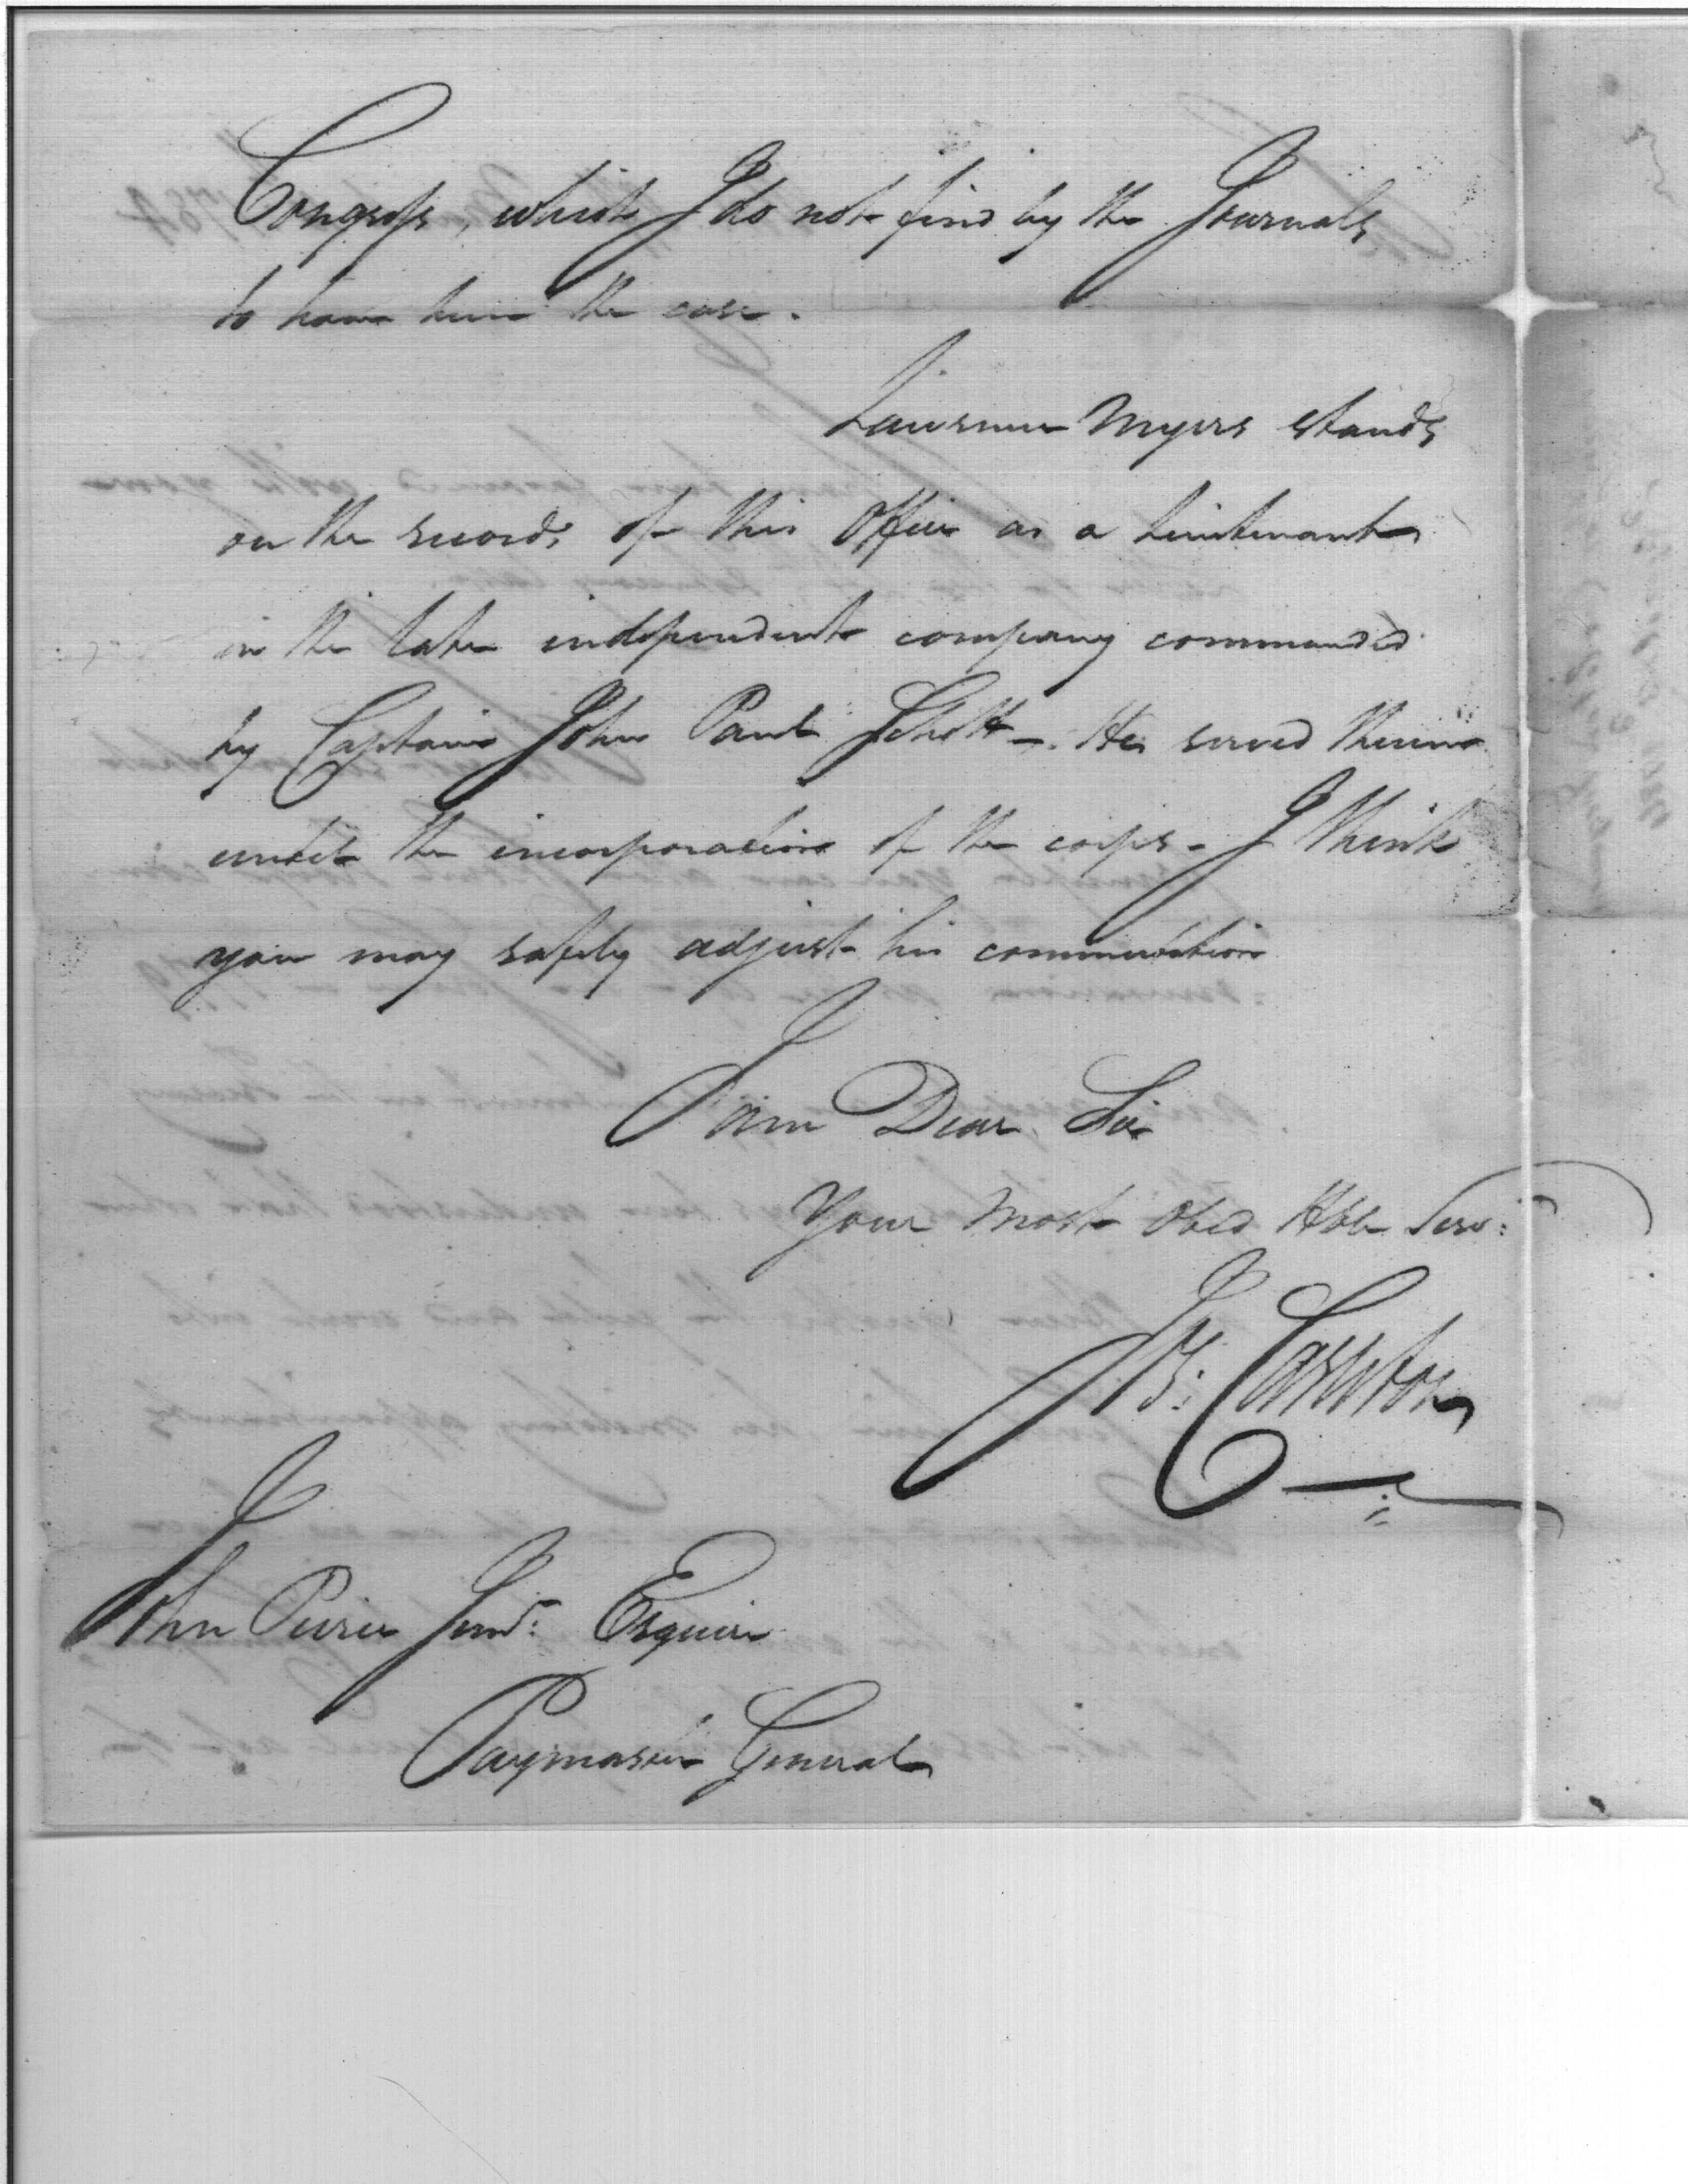 Congress, which I do not find by the Journals
to have been the case.
Lawrence Myers stands
on the records of this Office as a Lieutenant
in the late independent company commanded
by Captain John Paul Schott – He served therein
until the incorporation of the corps – I think
you may safely adjust his commutation
I am Dear Sir
Your Most Obed Hble Serv:
Js: Carleton
John Pierce Junr: Esquire
Paymaster General